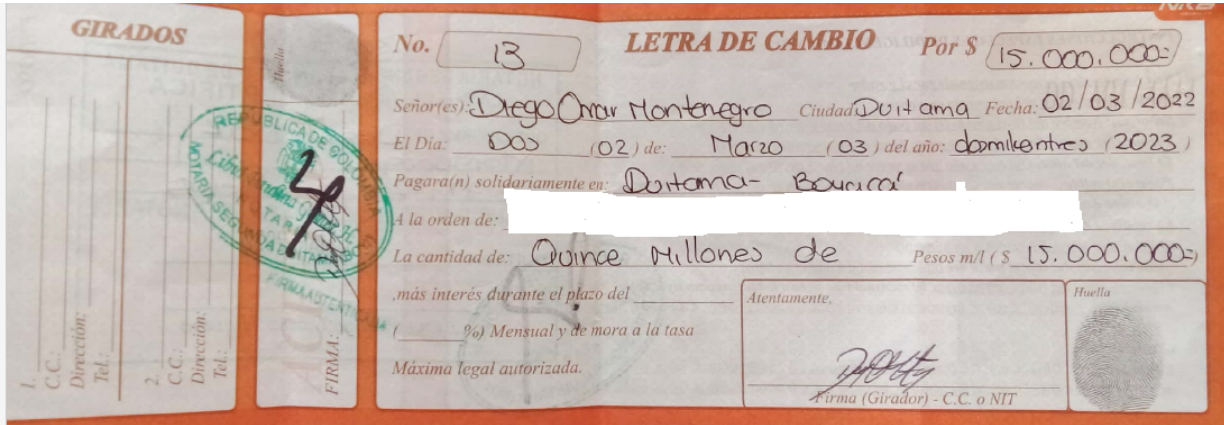 GIRADOS
1.
C.C.:
Dirección:
Tel.:
2.
C.C.:
Dirección:
Tel.:
Huella
FIRMA:
REPÚBLICA DE COLOMBIA
NOTARIA SEGUNDA
FIRMA AUTENTICADA
No. 13 LETRA DE CAMBIO Por $ 15.000.000=
Señor(es): Diego Omar Montenegro Ciudad Duitama Fecha: 02/03/2022
El Día: DOS (02) de: Marzo (03) del año: dosmilventres (2023)
Pagara(n) solidariamente en: Duitama- Boyacá
A la orden de:
La cantidad de: Quince Millones de Pesos m/l ($ 15.000.000=)
,más interés durante el plazo del
( %) Mensual y de mora a la tasa
Máxima legal autorizada.
Atentamente,
Firma (Girador) - C.C. o NIT
Huella